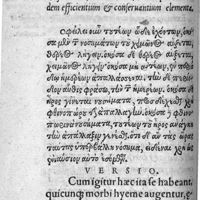 dem efficientium & conseruantium elementa.
ὀφείλει οὖν τουτέων ὧδε ἐχόντων, ὁκό
σα μὲν τῶν νοσημάτων χειμῶνος αὔξεται,
θέρεος λήγειν, ὁκόσα δὲ θέρεος αὔξεται,
χειμῶνος λήγειν, ὁκόσα μὴ αὐτέων ἐν
ἡμερέων ἀπαλλάσσεται. τὴν δὲ
αὖθις φράσω, τὴν τῶν ἡμερέων. ὁκό
σα δὲ ἦρος γίνεται νοσήματα, προσδέχεσθαι χρὴ
τὴν ἀπάλλαξιν ὁκόσα δὲ φθινο
πωρινὰ νοσήματα, τουτέων τοῦ ἦρος ἀνάγκη
τὴν ἀπάλλαξιν γενέσθαι. ὅ τι δ' ἂν τὰς
ὥρας νόσημα, εἰδέναι χρὴ ὡς ἐ
νιαύσιον αὐτὸ ἐσόμενον.
VERSIO.
Cum igitur hæc ita se habeant,
quicunq; morbi hyeme augentur,